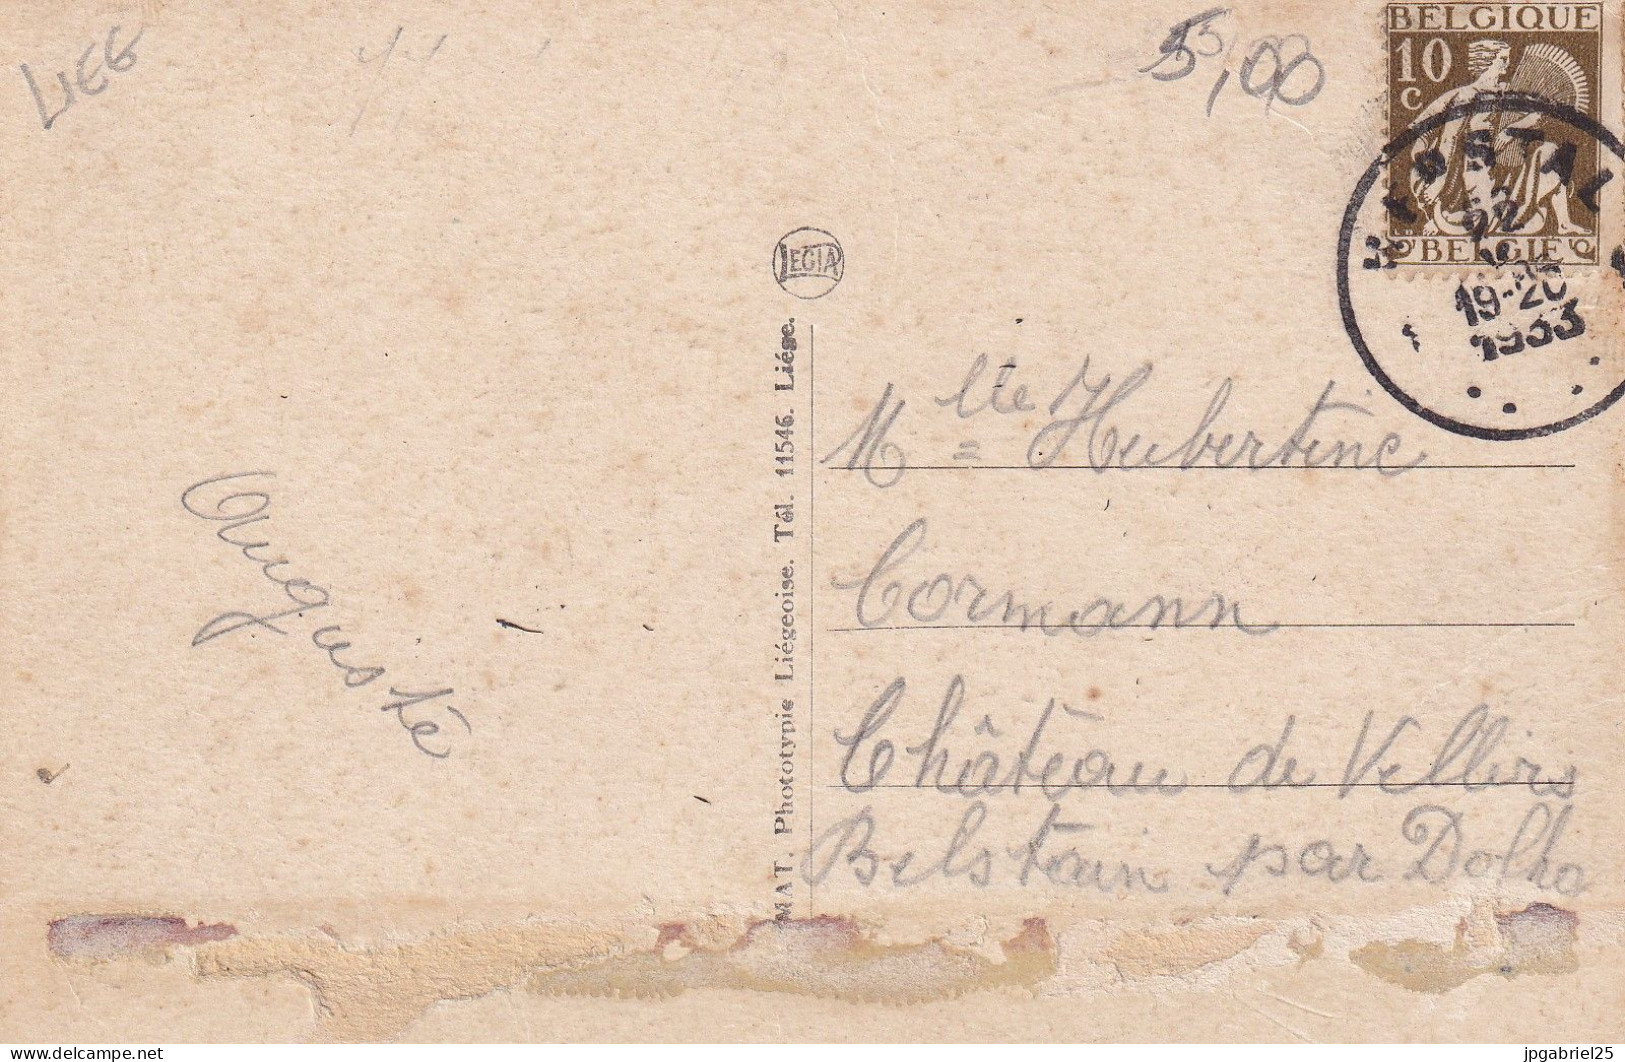 LIEG
5,00
BELGIQUE
10
C
BELGIË
19-20
1933
LEGIA
MAT. Phototypie Liégeoise. Tél. 11546. Liége.
Mlle Hubertine
Cormann
Château de Villers
Belstain par Dolha
Augusté